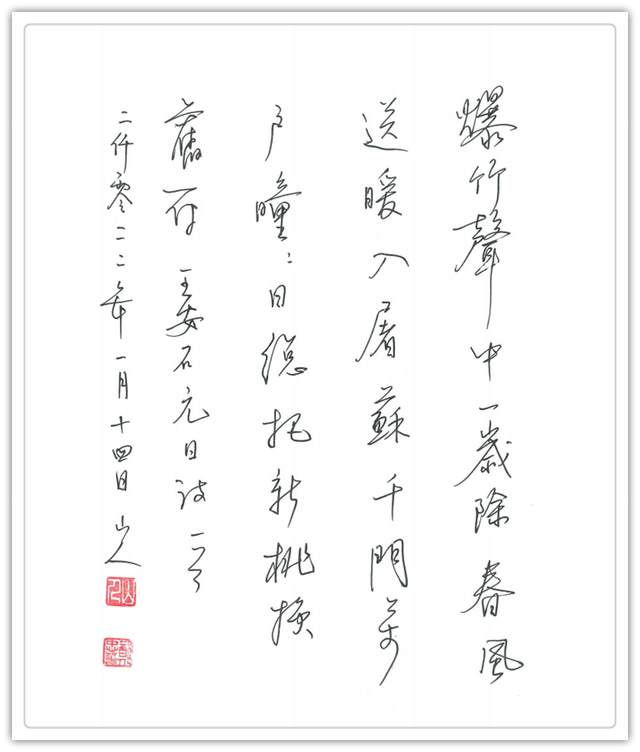 爆竹聲中一歲除春風
送暖入屠蘇千門萬
户曈々日總把新桃換
舊符 王安石元日詩一首
二仟零二二年一月十四日 山人
山人